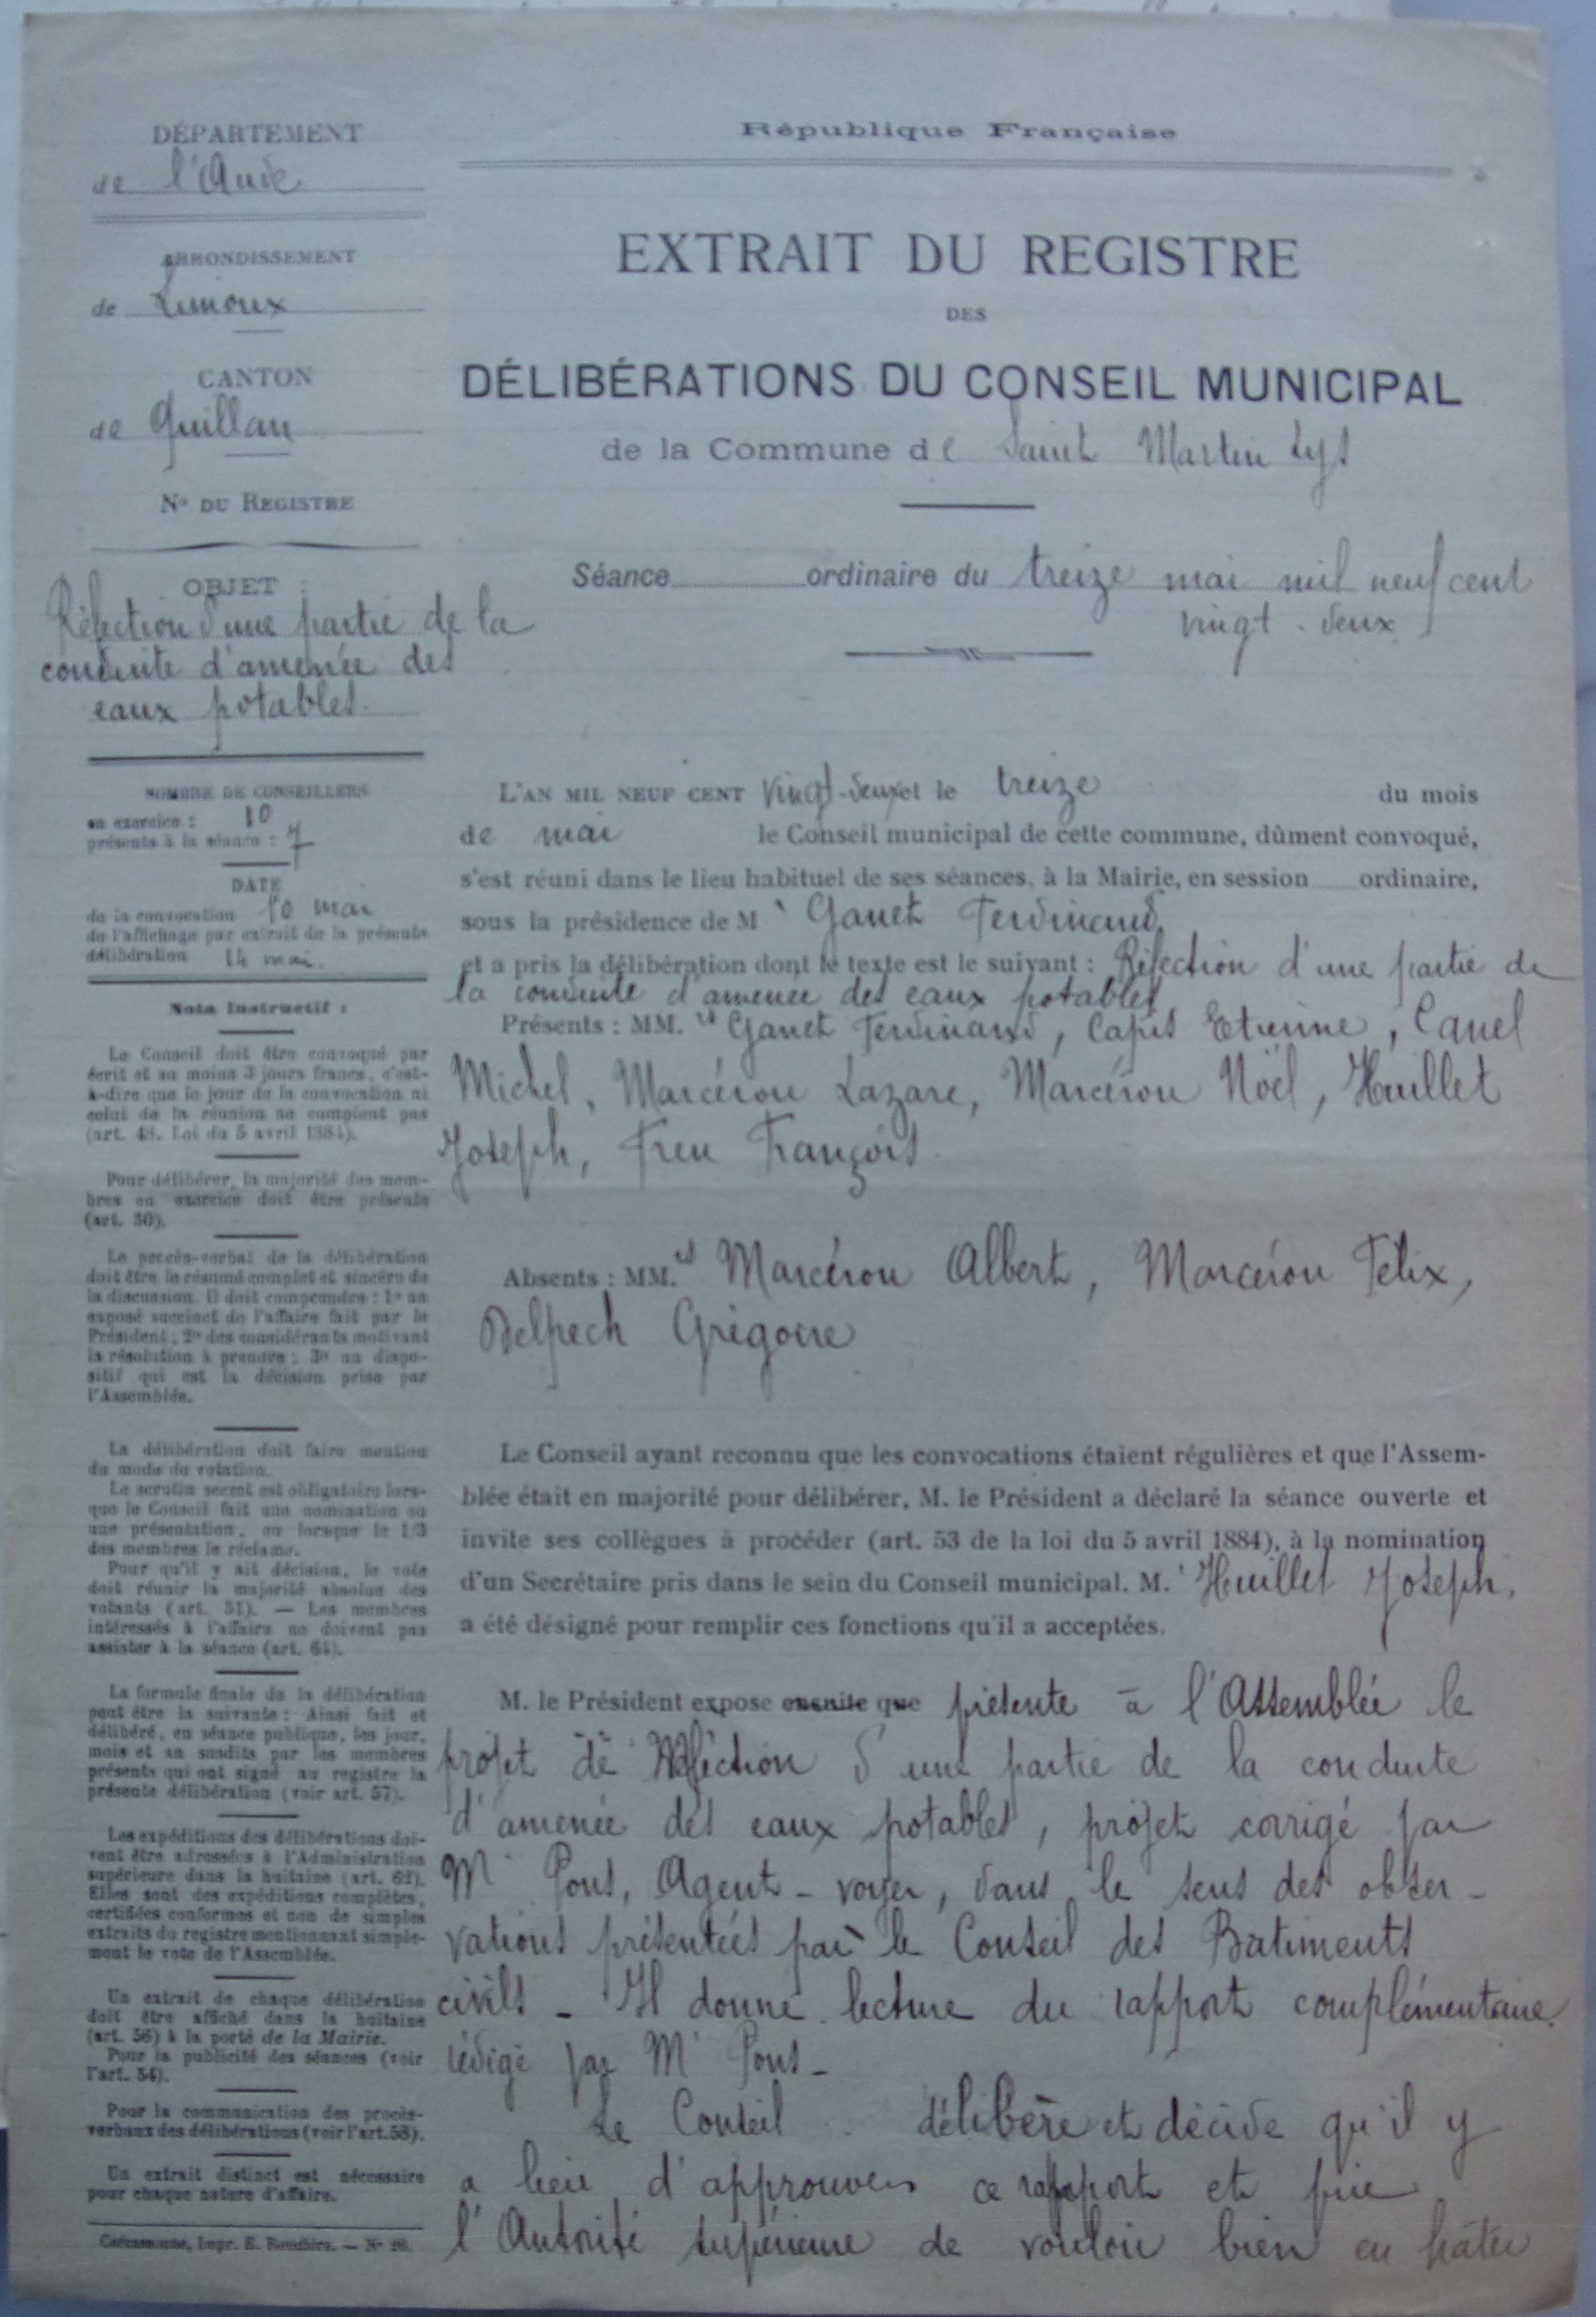 DÉPARTEMENT
de l'Aude
ARRONDISSEMENT
de Limoux
CANTON
de Quillan
No DU REGISTRE
OBJET :
Réfection d'une partie de la
conduite d'amenée des
eaux potables.
NOMBRE DE CONSEILLERS
en exercice : 10
présents à la séance : 7
DATE
de la convocation 10 mai
de l'affichage par extrait de la présente
délibération 14 mai.
Nota Instructif :
Le Conseil doit être convoqué par
écrit et au moins 3 jours francs, c'est-
à-dire que le jour de la convocation ni
celui de la réunion ne comptent pas
(art. 48. Loi du 5 avril 1884).
Pour délibérer, la majorité des mem-
bres en exercice doit être présente
(art. 50).
Le procès-verbal de la délibération
doit être le résumé complet et sincère de
la discussion. Il doit comprendre : 1o un
exposé succinct de l'affaire fait par le
Président ; 2o des considérants motivant
la résolution à prendre ; 3o un dispo-
sitif qui est la décision prise par
l'Assemblée.
La délibération doit faire mention
du mode de votation.
Le scrutin secret est obligatoire lors-
que le Conseil fait une nomination ou
une présentation, ou lorsque le 1/3
des membres le réclame.
Pour qu'il y ait décision, le vote
doit réunir la majorité absolue des
votants (art. 51). — Les membres
intéressés à l'affaire ne doivent pas
assister à la séance (art. 64).
La formule finale de la délibération
peut être la suivante : Ainsi fait et
délibéré, en séance publique, les jour,
mois et an susdits par les membres
présents qui ont signé au registre la
présente délibération (voir art. 57).
Les expéditions des délibérations doi-
vent être adressées à l'Administration
supérieure dans la huitaine (art. 62).
Elles sont des expéditions complètes,
certifiées conformes et non de simples
extraits du registre mentionnant simple-
ment le vote de l'Assemblée.
Un extrait de chaque délibération
doit être affiché dans la huitaine
(art. 56) à la porte de la Mairie.
Pour la publicité des séances (voir
l'art. 54).
Pour la communication des procès-
verbaux des délibérations (voir l'art. 58).
Un extrait distinct est nécessaire
pour chaque nature d'affaire.
Carcassonne, Impr. E. Roudière. — No
République Française
EXTRAIT DU REGISTRE
DES
DÉLIBÉRATIONS DU CONSEIL MUNICIPAL
de la Commune de Saint Martin Lys
Séance ordinaire du treize mai mil neuf cent
vingt-deux
L'AN MIL NEUF CENT vingt-deux et le treize du mois
de mai le Conseil municipal de cette commune, dûment convoqué,
s'est réuni dans le lieu habituel de ses séances, à la Mairie, en session ordinaire,
sous la présidence de Mr Ganet Ferdinand,
et a pris la délibération dont le texte est le suivant : Réfection d'une partie de
la conduite d'amenée des eaux potables
Présents : MM.rs Ganet Ferdinand, Capis Etienne, Canel
Michel, Marcérou Lazare, Marcérou Noël, Huillet
Joseph, Freu François.
Absents : MM.rs Marcérou Albert, Marcérou Félix,
Delpech Grégoire
Le Conseil ayant reconnu que les convocations étaient régulières et que l'Assem-
blée était en majorité pour délibérer, M. le Président a déclaré la séance ouverte et
invite ses collègues à procéder (art. 53 de la loi du 5 avril 1884), à la nomination
d'un Secrétaire pris dans le sein du Conseil municipal. M.r Huillet Joseph,
a été désigné pour remplir ces fonctions qu'il a acceptées.
M. le Président expose ensuite que présente à l'Assemblée le
projet de Réfection d'une partie de la conduite
d'amenée des eaux potables, projet corrigé par
Mr Pons, Agent-voyer, dans le sens des obser-
vations présentées par le Conseil des Batiments
civils - Il donne lecture du rapport complémentaire
rédigé par Mr Pons -
Le Conseil délibère et décide qu'il y
a lieu d'approuver ce rapport et prie
l'Autorité supérieure de vouloir bien en hâter